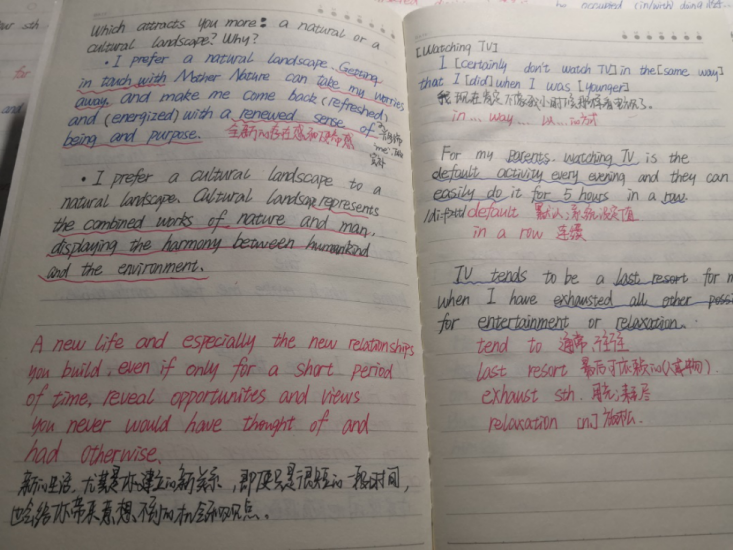 Which attracts you more: a natural or a
cultural landscape? Why?
• I prefer a natural landscape. Getting
in touch with Mother Nature can take my worries
away and make me come back (refreshed)
and (energized) with a renewed sense of
being and purpose.
• I prefer a cultural landscape to a
natural landscape. Cultural landscap represents
the combined works of nature and man,
displaying the harmony between humankind
and the environment.
A new life and especially the new relationships
you build, even if only for a short period
of time, reveal opportunites and views
you never would have thought of and
had otherwise.
新的生活,尤其是你建立的新关系,即便只是很短的一段时间,
也会给你带来意想不到的机会和观点。
[Watching TV]
I [certainly don't watch TV] in the [same way]
that I [did] when I was [younger]
in ... way 以...的方式
For my parents, watching TV is the
default activity every evening and they can
easily do it for 5 hours in a row.
default 默认;系统设定值
in a row 连续
TV tends to be a last resort for
when I have exhausted all other
for entertainment or relaxation.
tend to 通常,往往
last resort
exhaust sth.
relaxation [n.] 放松.